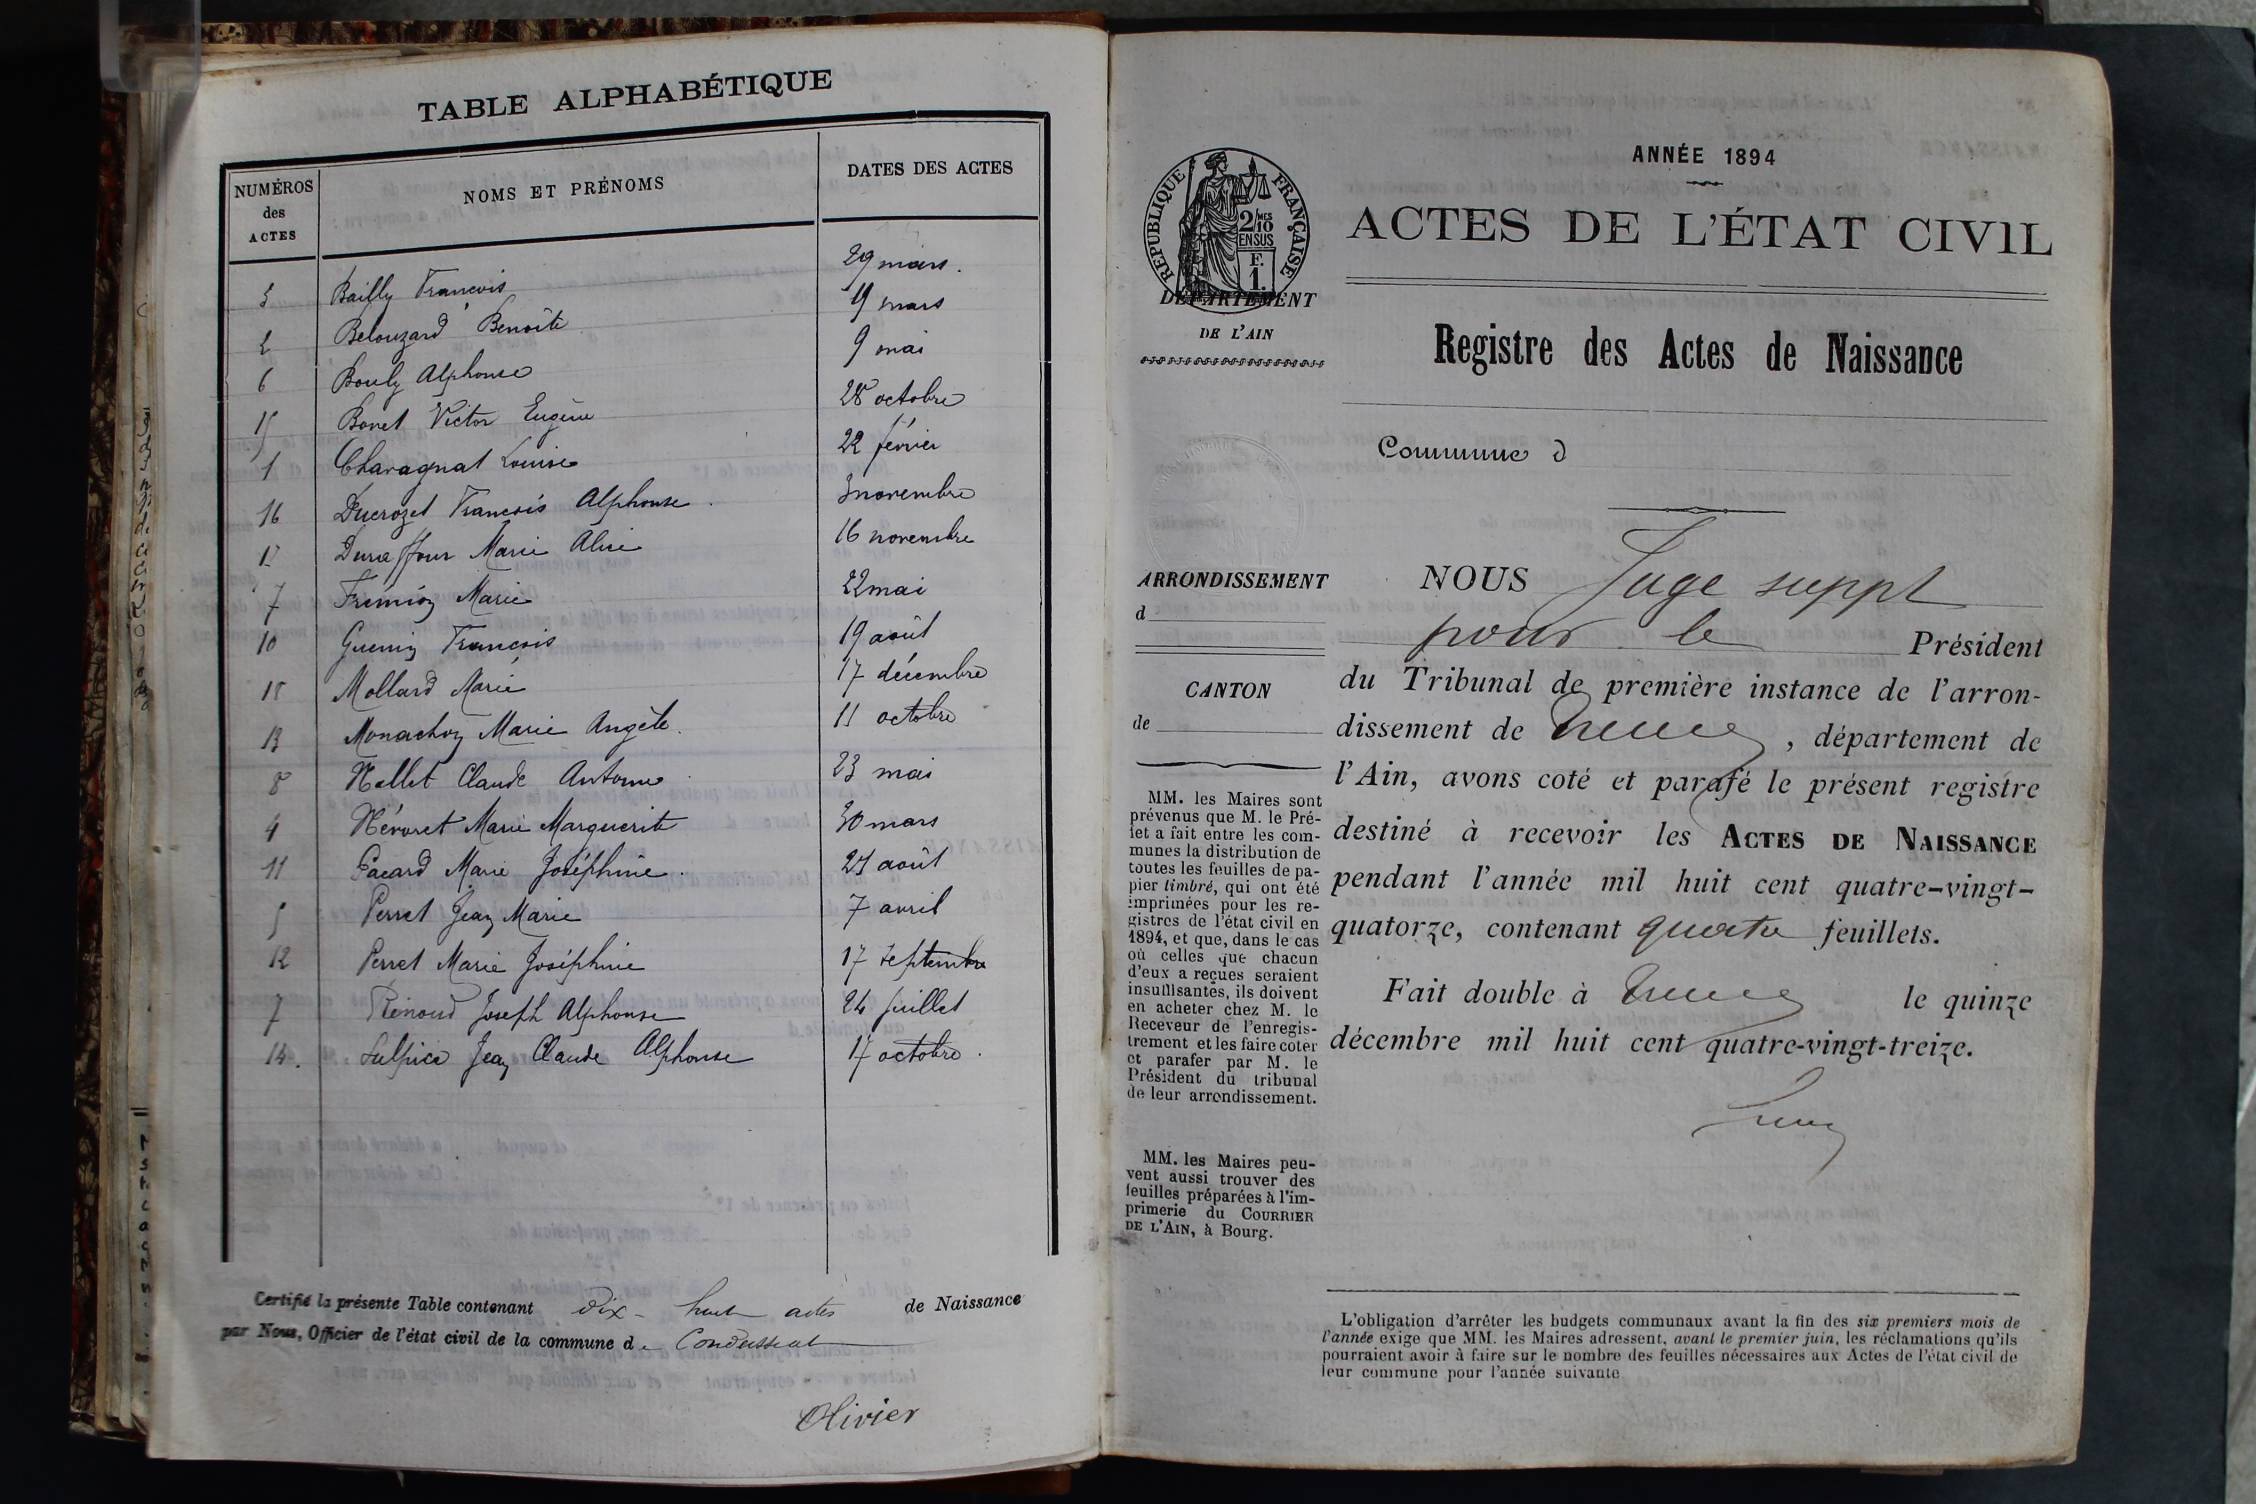 TABLE ALPHABÉTIQUE
NUMÉROS des ACTES | NOMS ET PRÉNOMS | DATES DES ACTES
3 Bailly François 29 mars.
2 Belouzard Benoîte 9 mars
6 Bouly Alphonse 9 mai
15 Bonet Victor Eugène 28 octobre
1 Charagnat Louise 22 février
16 Ducrozet François Alphonse. 3 novembre
17 Duraffour Marie Alice 16 novembre
7 Frémion Marie 22 mai
10 Guenin François 19 août
18 Mollard Marie 17 décembre
13 Monachon Marie Angèle. 11 octobre
8 Nallet Claude Antoine 23 mai
4 Névoret Marie Marguerite 30 mars
11 Pacard Marie Joséphine. 21 août
5 Perret Jean Marie 7 avril
12 Perret Marie Joséphine 17 septembre
7 Rénoud Joseph Alphonse 24 juillet
14. Sulpice Jean Claude Alphonse 17 octobre.
Certifié la présente Table contenant dix-huit actes de Naissance
par Nous, Officier de l'état civil de la commune de Condeissiat
Olivier
ANNÉE 1894
ACTES DE L'ÉTAT CIVIL
RÉPUBLIQUE FRANÇAISE
2/10 MES
EN SUS
F.
1.
DÉPARTEMENT
DE L'AIN
Registre des Actes de Naissance
Commune d
ARRONDISSEMENT
d
CANTON
de
MM. les Maires sont
prévenus que M. le Pré-
fet a fait entre les com-
munes la distribution de
toutes les feuilles de pa-
pier timbré, qui ont été
imprimées pour les re-
gistres de l'état civil en
1894, et que, dans le cas
où celles que chacun
d'eux a reçues seraient
insuffisantes, ils doivent
en acheter chez M. le
Receveur de l'enregis-
trement et les faire coter
et parafer par M. le
Président du tribunal
de leur arrondissement.
MM. les Maires peu-
vent aussi trouver des
feuilles préparées à l'im-
primerie du COURRIER
DE L'AIN, à Bourg.
NOUS Juge suppt
pour le Président
du Tribunal de première instance de l'arron-
dissement de Trévoux, département de
l'Ain, avons coté et parafé le présent registre
destiné à recevoir les ACTES DE NAISSANCE
pendant l'année mil huit cent quatre-vingt-
quatorze, contenant quatre feuillets.
Fait double à Trévoux le quinze
décembre mil huit cent quatre-vingt-treize.
L'obligation d'arrêter les budgets communaux avant la fin des six premiers mois de
l'année exige que MM. les Maires adressent, avant le premier juin, les réclamations qu'ils
pourraient avoir à faire sur le nombre des feuilles nécessaires aux Actes de l'état civil de
leur commune pour l'année suivante